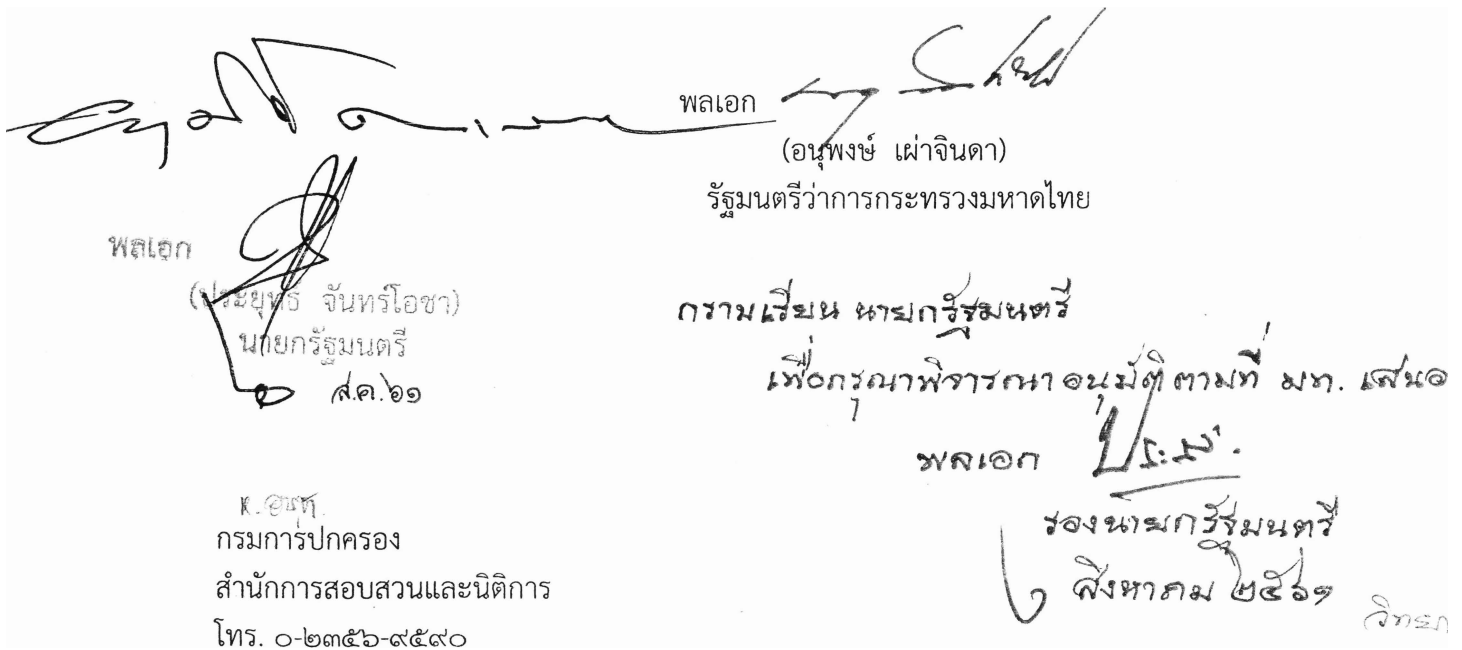 พลเอก
(อนุพงษ์ เผ่าจินดา)
รัฐมนตรีว่าการกระทรวงมหาดไทย
พลเอก
(ประยุทธ์ จันทร์โอชา)
นายกรัฐมนตรี
ส.ค. ๖๑
กราบเรียน นายกรัฐมนตรี
เพื่อกรุณาพิจารณาอนุมัติ ตามที่ มท. เสนอ
พลเอก
รองนายกรัฐมนตรี
สิงหาคม ๒๕๖๑
กรมการปกครอง
สำนักการสอบสวนและนิติการ
โทร. ๐-๒๓๕๖-๙๕๙๐